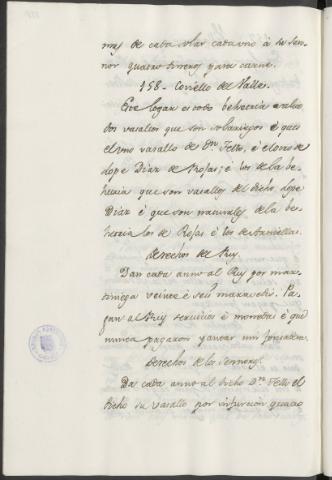 mj de cada solar cada uno á su sen-
nor quatro dineros para carne.
158 - Coviello del Valle.
Este logar es todo behetria salbo
dos vasallos que son solariegos é que es
el uno vasallo de Dn. Tello, é el otro de
Lope Diaz de Rojas; é los de la be-
hetria que son vasallos del dicho Lope
Diaz é que son naturales de la be-
hetria los de Rojas é los de
Derechos del Rey.
Dan cada anno al Rey por mar-
tiniega veinte é seis maravedis. Pa-
gan al Rey servicios é monedas é que
nunca pagaron yantar nin fonsadera.
Derechos de los Sennores.
Da cada anno al dicho Dn. Tello el
dicho su vasallo por infurción quatro